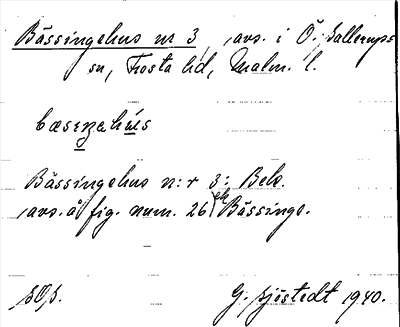 Bässingehus nr 3, avs. i Ö. Sallerups
sn, Frosta hd, Malm. l.
bæsɪŋahús
Bässingehus n:r 3: Beb.
avs. å fig. num. 26 på Bässinge.
SOS. G. Sjöstedt 1940.